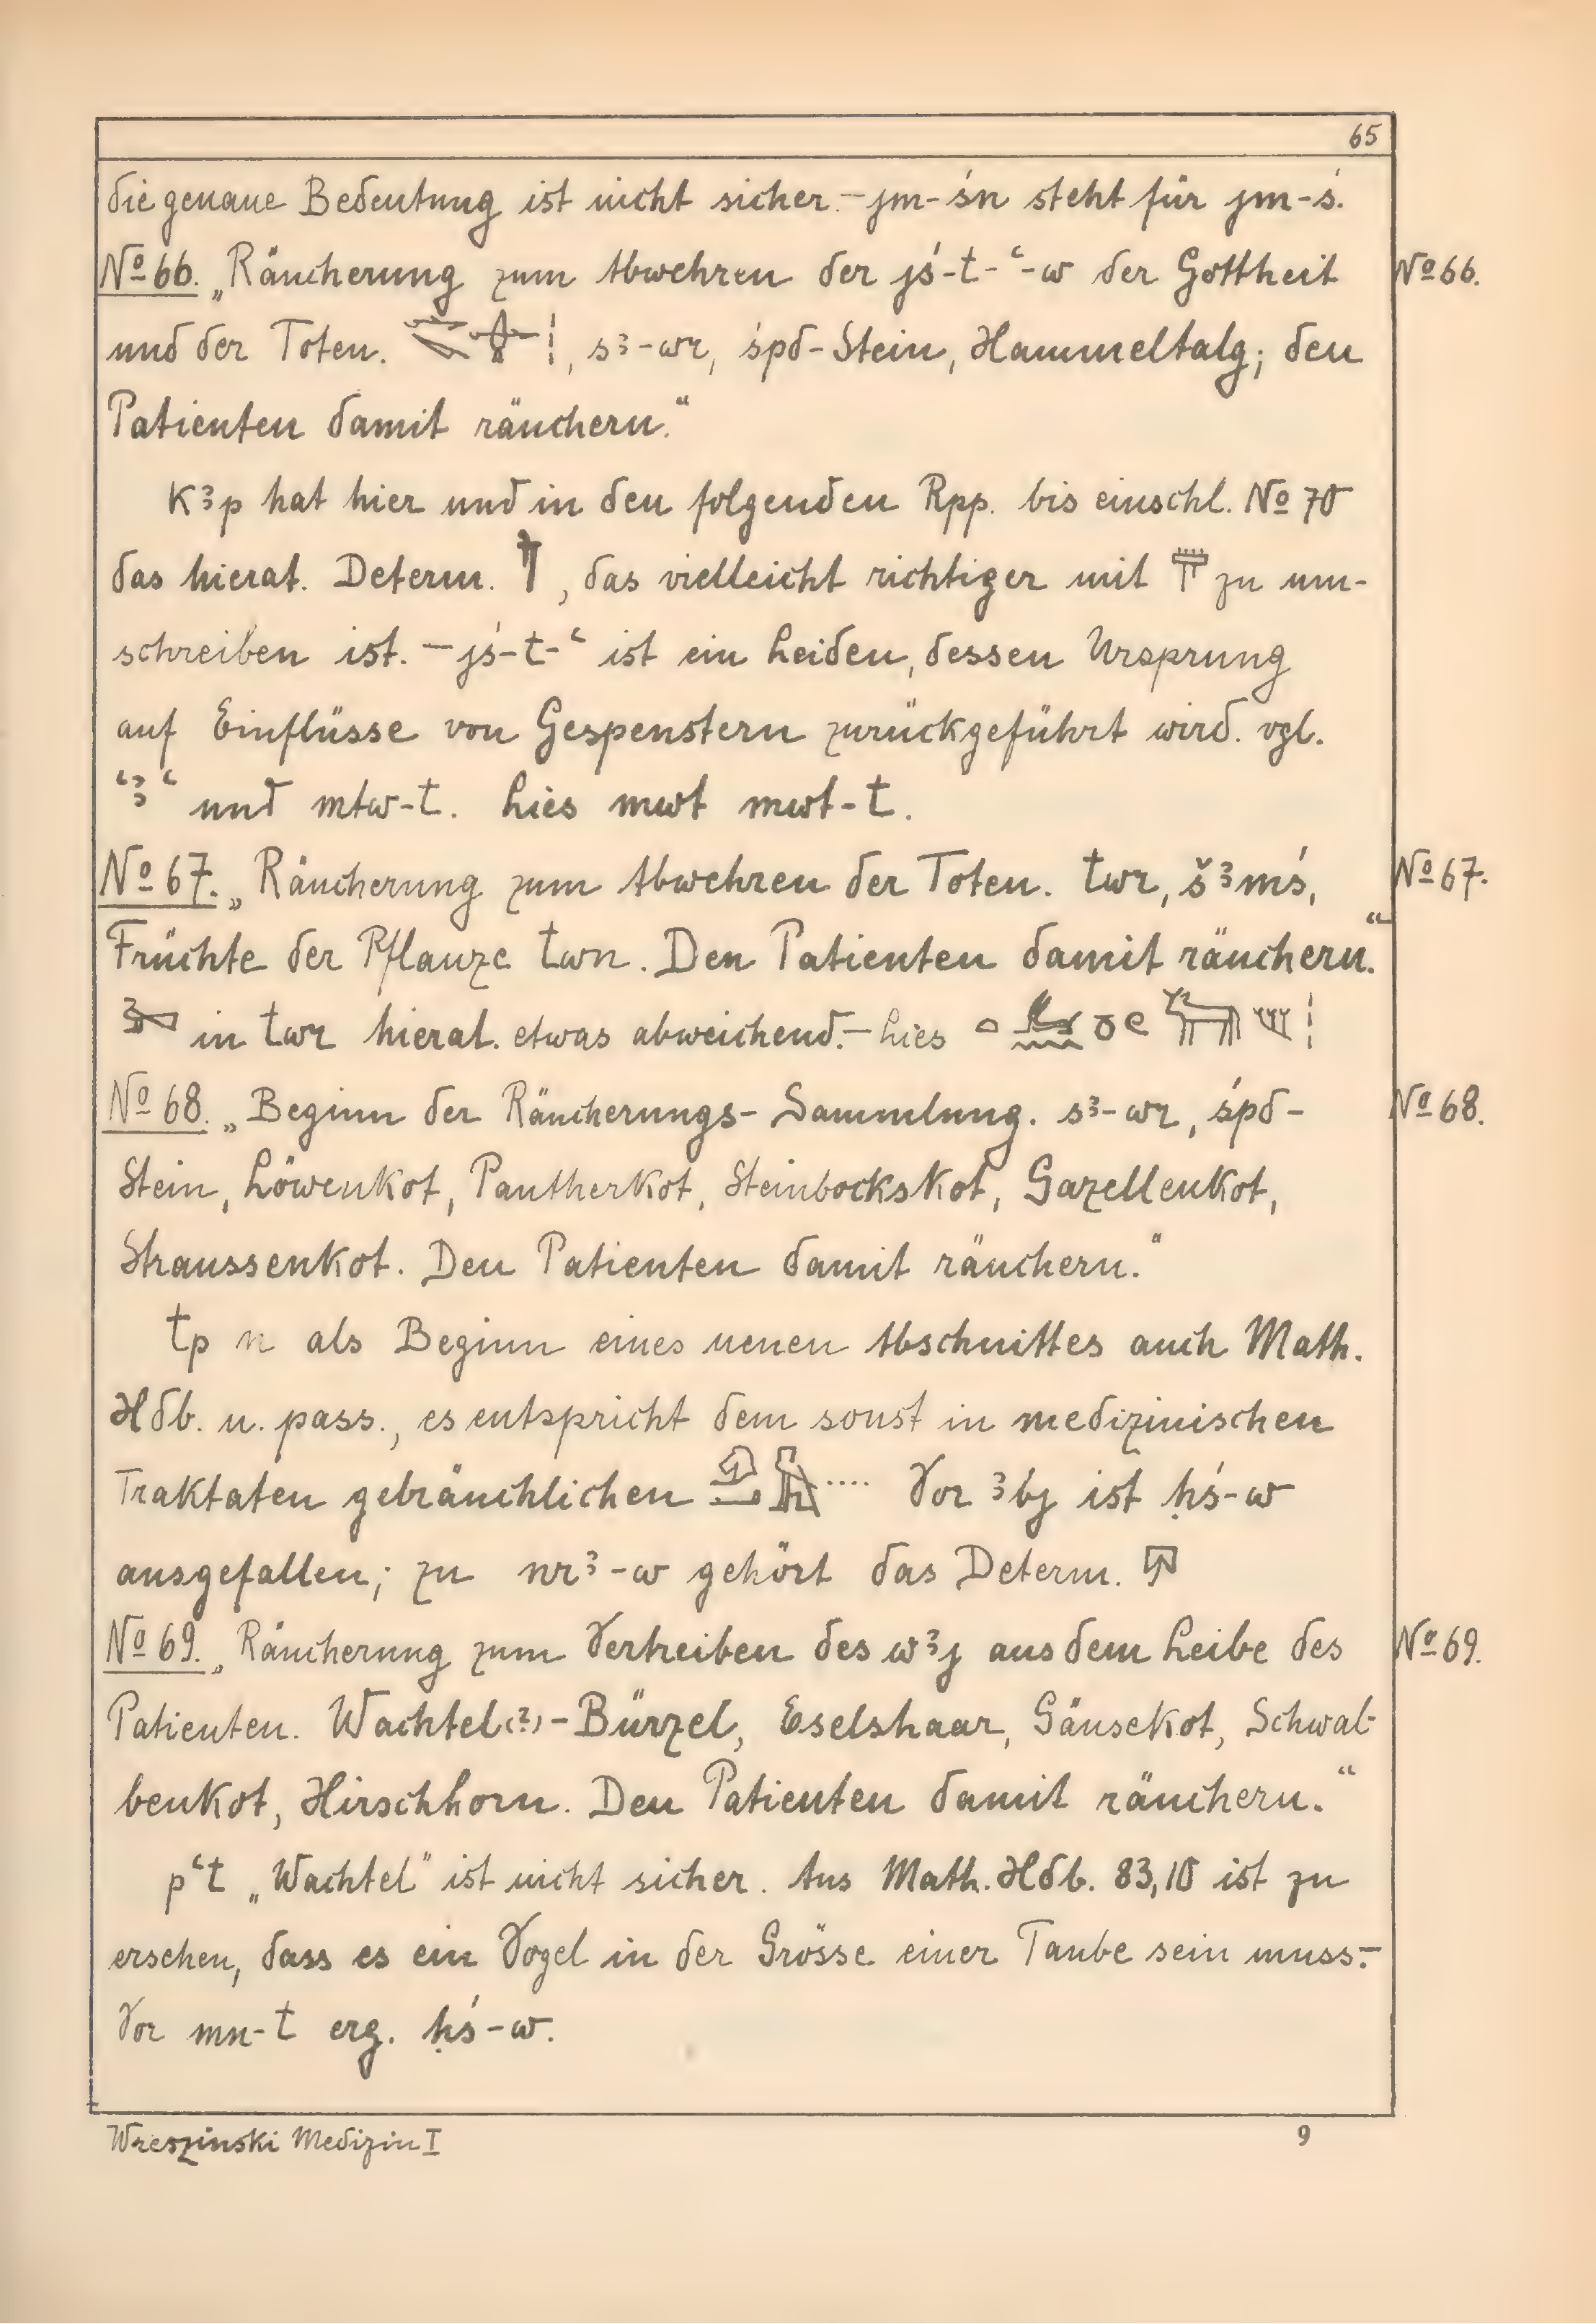 65
die genaue Bedeutung ist nicht sicher. – jm-śn steht für jm-ś.
No 66. „Räucherung zum Abwehren der jś-t-ʿ-w der Gottheit No 66.
und der Toten. , sꜣ-wr, śpd-Stein, Hammeltalg; den
Patienten damit räuchern.“
Kꜣp hat hier und in den folgenden Rpp. bis einschl. No 70
das hierat. Determ. , das vielleicht richtiger mit zu um-
schreiben ist. – jś-t-ʿ ist ein Leiden, dessen Ursprung
auf Einflüsse von Gespenstern zurückgeführt wird. vgl.
ʿꜣʿ und mtw-t. Lies mwt mwt-t.
No 67. „Räucherung zum Abwehren der Toten. twr, šꜣmś, No 67.
Früchte der Pflanze twn. Den Patienten damit räuchern.“
in twr hierat. etwas abweichend. – Lies
No 68. „Beginn der Räucherungs-Sammlung. sꜣ-wr, śpd- No 68.
Stein, Löwenkot, Pantherkot, Steinbockskot, Gazellenkot,
Straussenkot. Den Patienten damit räuchern.“
tp n als Beginn eines neuen Abschnittes auch Math.
Hdb. u. pass., es entspricht dem sonst in medizinischen
Traktaten gebräuchlichen .... Vor ꜣbj ist ḥś-w
ausgefallen; zu nrꜣ-w gehört das Determ.
No 69. „Räucherung zum Vertreiben des wꜣj aus dem Leibe des No 69.
Patienten. Wachtel(?)-Bürzel, Eselshaar, Gänsekot, Schwal-
benkot, Hirschhorn. Den Patienten damit räuchern.“
pʿt „Wachtel“ ist nicht sicher. Aus Math. Hdb. 83,10 ist zu
ersehen, dass es ein Vogel in der Grösse einer Taube sein muss. –
Vor mn-t erg. ḥś-w.
Wreszinski Medizin I 9